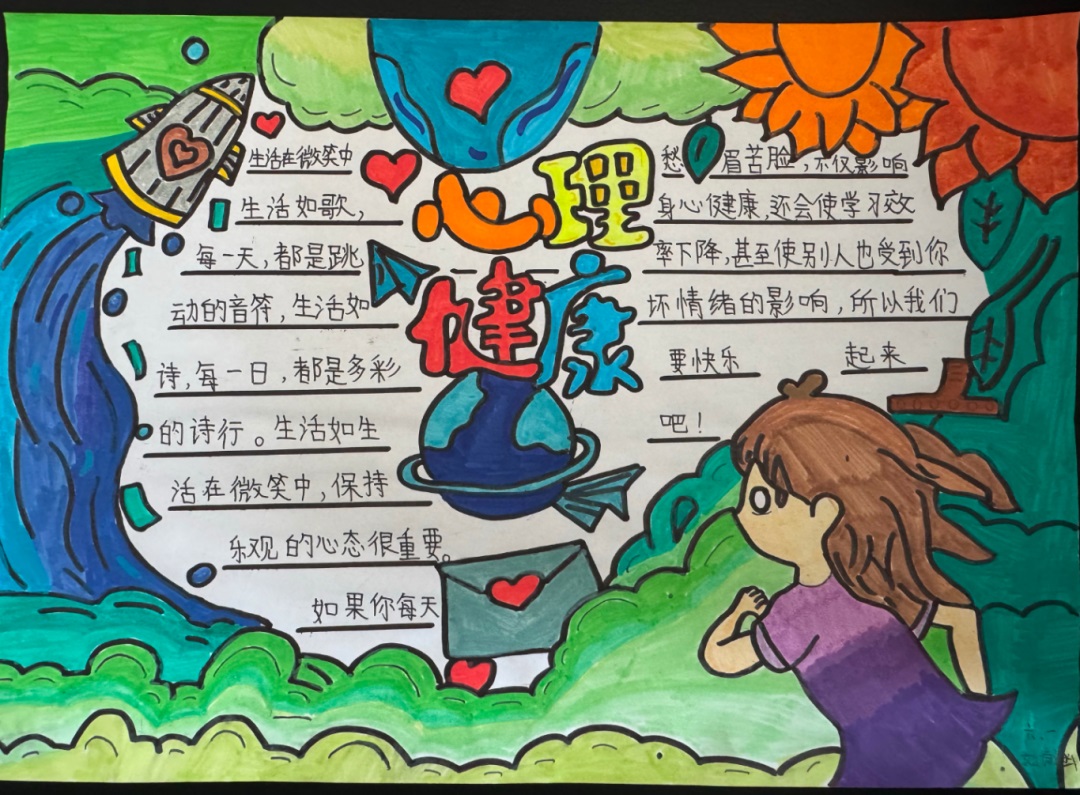 心理
健康
生活在微笑中
生活如歌，
每一天，都是跳
动的音符，生活如
诗，每一日，都是多彩
的诗行。生活如生
活在微笑中，保持
乐观的心态很重要。
如果你每天
愁眉苦脸，不仅影响
身心健康，还会使学习效
率下降，甚至使别人也受到你
坏情绪的影响，所以我们
要快乐 起来
吧！